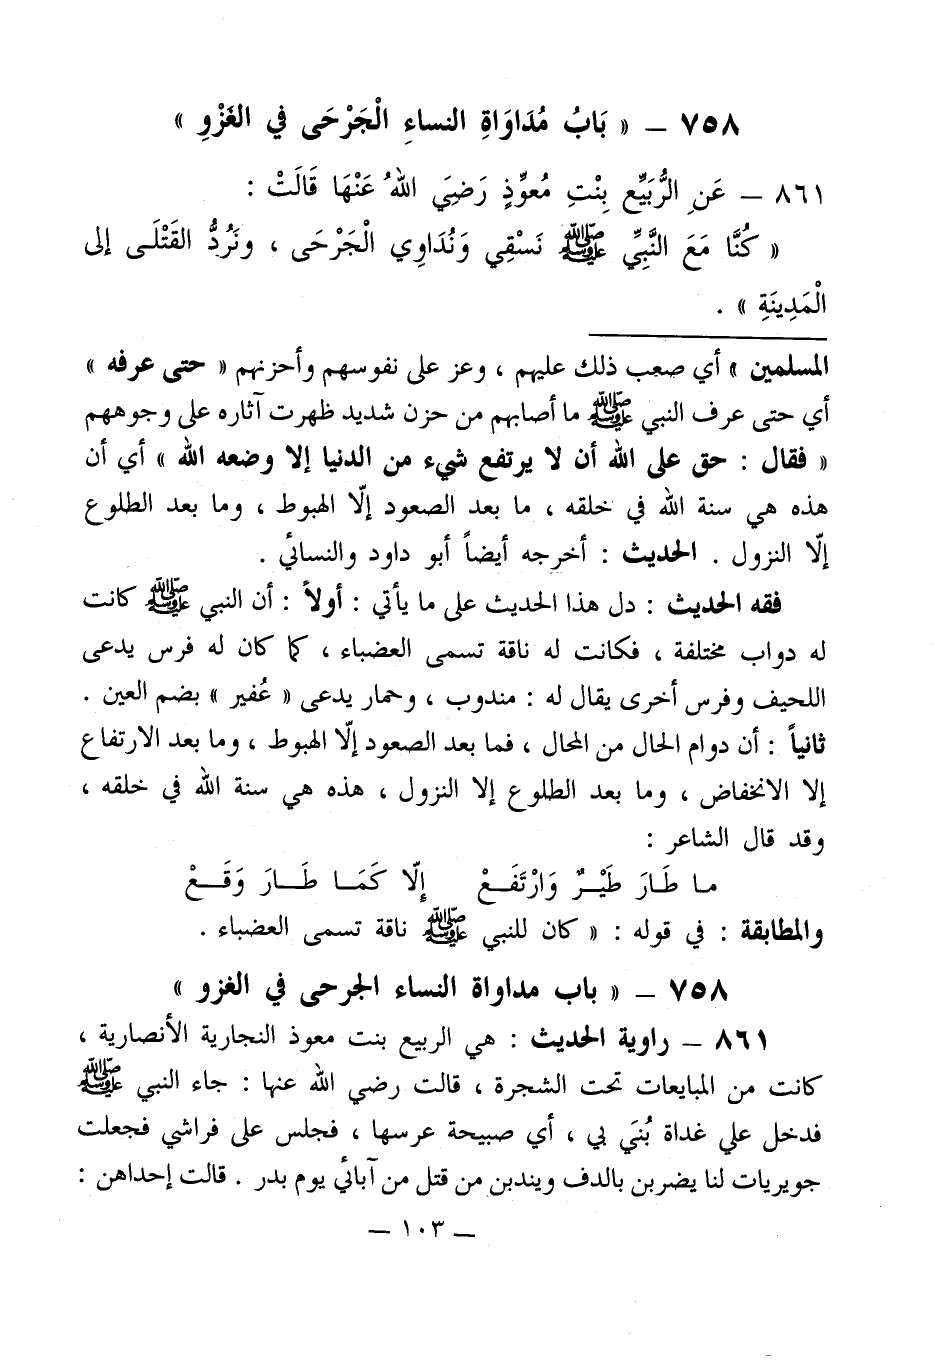 ٧٥٨ – « بَابُ مُدَاوَاةِ النساءِ الْجَرْحَى في الغَزْوِ »
٨٦١ – عَنِ الرُّبَيِّعِ بِنْتِ مُعوِّذٍ رَضِيَ اللهُ عَنْهَا قَالَتْ :
« كُنَّا مَعَ النَّبِيِّ ﷺ نَسْقِي وَنُدَاوِي الْجَرْحَى ، ونَرُدُّ القَتْلَى إلى
الْمَدِينَةِ » .
المسلمين » أي صعب ذلك عليهم ، وعز على نفوسهم وأحزنهم « حتى عرفه »
أي حتى عرف النبي ﷺ ما أصابهم من حزن شديد ظهرت آثاره على وجوههم
« فقال : حق على الله أن لا يرتفع شيء من الدنيا إلا وضعه الله » أي أن
هذه هي سنة الله في خلقه ، ما بعد الصعود إلّا الهبوط ، وما بعد الطلوع
إلّا النزول . الحديث : أخرجه أيضاً أبو داود والنسائي .
فقه الحديث : دل هذا الحديث على ما يأتي : أولاً : أن النبي ﷺ كانت
له دواب مختلفة ، فكانت له ناقة تسمى العضباء ، كما كان له فرس يدعى
اللحيف وفرس أخرى يقال له : مندوب ، وحمار يدعى « عُفير » بضم العين .
ثانياً : أن دوام الحال من المحال ، فما بعد الصعود إلّا الهبوط ، وما بعد الارتفاع
إلا الانخفاض ، وما بعد الطلوع إلا النزول ، هذه هي سنة الله في خلقه ،
وقد قال الشاعر :
ما طَارَ طَيْرٌ وَارْتَفَعْ إلّا كَمَا طَارَ وَقَعْ
والمطابقة : في قوله : « كان للنبي ﷺ ناقة تسمى العضباء .
٧٥٨ – « باب مداواة النساء الجرحى في الغزو »
٨٦١ – راوية الحديث : هي الربيع بنت معوذ النجارية الأنصارية ،
كانت من المبايعات تحت الشجرة ، قالت رضي الله عنها : جاء النبي ﷺ
فدخل علي غداة بُنَي بي ، أي صبيحة عرسها ، فجلس على فراشي فجعلت
جويريات لنا يضربن بالدف ويندبن من قتل من آبائي يوم بدر . قالت إحداهن :
– ١٠٣ –